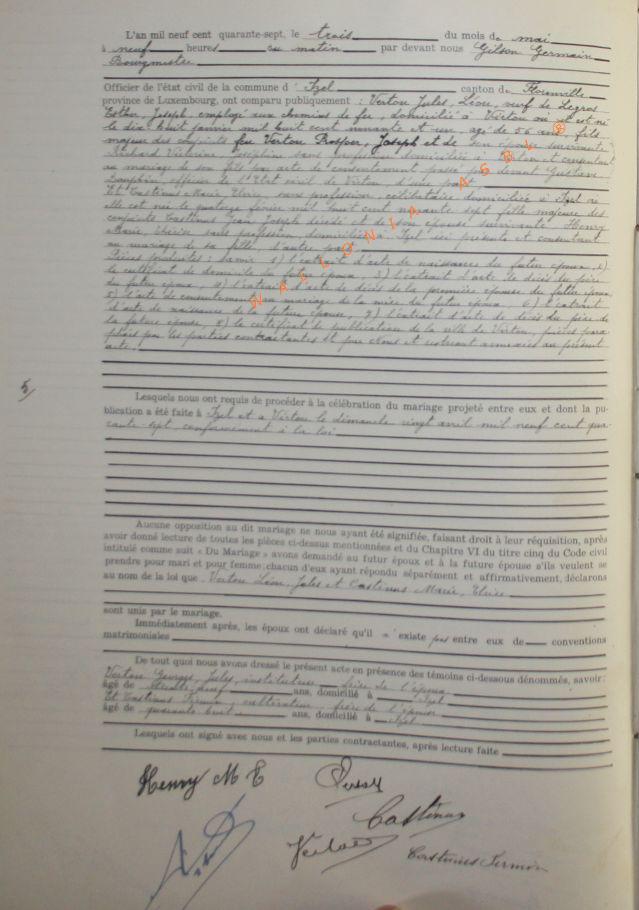 L'an mil neuf cent quarante-sept, le trois du mois de mai
à neuf heures du matin par devant nous Gilson Germain
Bourgmestre
Officier de l'état civil de la commune d' Izel canton de Florenville
province de Luxembourg, ont comparu publiquement : Verton Jules, Léon, veuf de Legros
Esther, Joseph, employé aux chemins de fer, domicilié à Virton où est né
le dix-huit janvier mil huit cent nonante et un, agé de 56 ans, fils
majeur des conjoints feu Verton Prosper, Joseph et de son épouse survivante
Richard Victorine, Joséphine sans profession domiciliée à Virton et consentant
au mariage de son fils par acte de consentement passé devant Gustave
Dauphin officier de l'Etat civil de Virton, d'une part
Et Castinus Marie sans profession, célibataire domiciliée à Izel où
elle est née le quatorze février mil huit cent nonante sept fille majeure des
conjoints Castinus Jean Joseph décédé et son épouse survivante Henry
Marie, sans profession domiciliée à Izel ici présente et consentant
au mariage de sa fille, d'autre part
Pièces produites : savoir 1) l'extrait d'acte de naissances du futur époux, 2)
le certificat de domicile du futur époux 3) l'extrait d'acte de décès du père
du futur époux, 4) l'extrait d'acte de décès de la première épouse du futur époux,
5) l'acte de consentement au mariage de la mère du futur époux 6) l'extrait
d'acte de naissance de la future épouse, 7) l'extrait d'acte de décès du père de
la future épouse, 8) le certificat de publication de la ville de Virton, pièces para
phées par les parties contractantes et par Nous et resteront annexées au présent
acte.
WALLONIA ASBL ®
5/
Lesquels nous ont requis de procéder à la célébration du mariage projeté entre eux et dont la pu-
blication a été faite à Izel et à Virton le dimanche vingt avril mil neuf cent qua-
rante-sept conformément à la loi
Aucune opposition au dit mariage ne nous ayant été signifiée, faisant droit à leur réquisition, après
avoir donné lecture de toutes les pièces ci-dessus mentionnées et du Chapitre VI du titre cinq du Code civil
intitulé comme suit « Du Mariage » avons demandé au futur époux et à la future épouse s'ils veulent se
prendre pour mari et pour femme; chacun d'eux ayant répondu séparément et affirmativement, déclarons
au nom de la loi que Verton Léon, Jules et Castinus Marie,
sont unis par le mariage.
Immédiatement après, les époux ont déclaré qu'il n'existe pas entre eux de conventions
matrimoniales
De tout quoi nous avons dressé le présent acte en présence des témoins ci-dessous dénommés, savoir:
Verton Georges, Jules, instituteur frère de l'époux
âgé de ans, domicilié à Izel
Et Castinus Firmin cultivateur frère de l'épouse
âgé de quarante huit ans, domicilié à Izel
Lesquels ont signé avec nous et les parties contractantes, après lecture faite
Henry M E
Castinus
Verton
Castinus Firmin